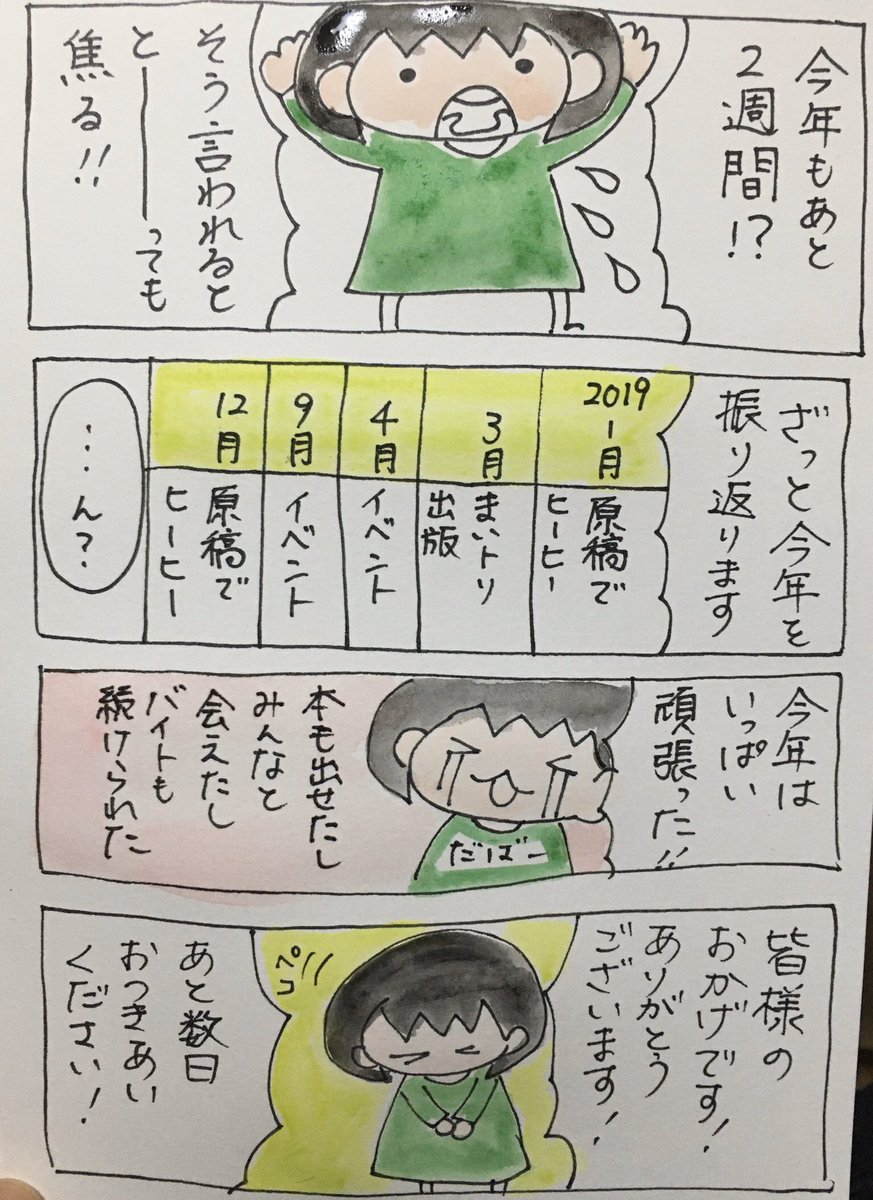 今年もあと
2週間!?
そう言われると
と───っても
焦る!!
ざっと今年を
振り返ります
2019
1月
原稿で
ヒーヒー
3月
まいトリ
出版
4月
イベント
9月
イベント
12月
原稿で
ヒーヒー
…ん?
今年は
いっぱい
頑張った!!
だばー
本も出せたし
みんなと
会えたし
バイトも
続けられた
皆様の
おかげです!
ありがとう
ございます!
ペコ
あと数日
おつきあい
ください!